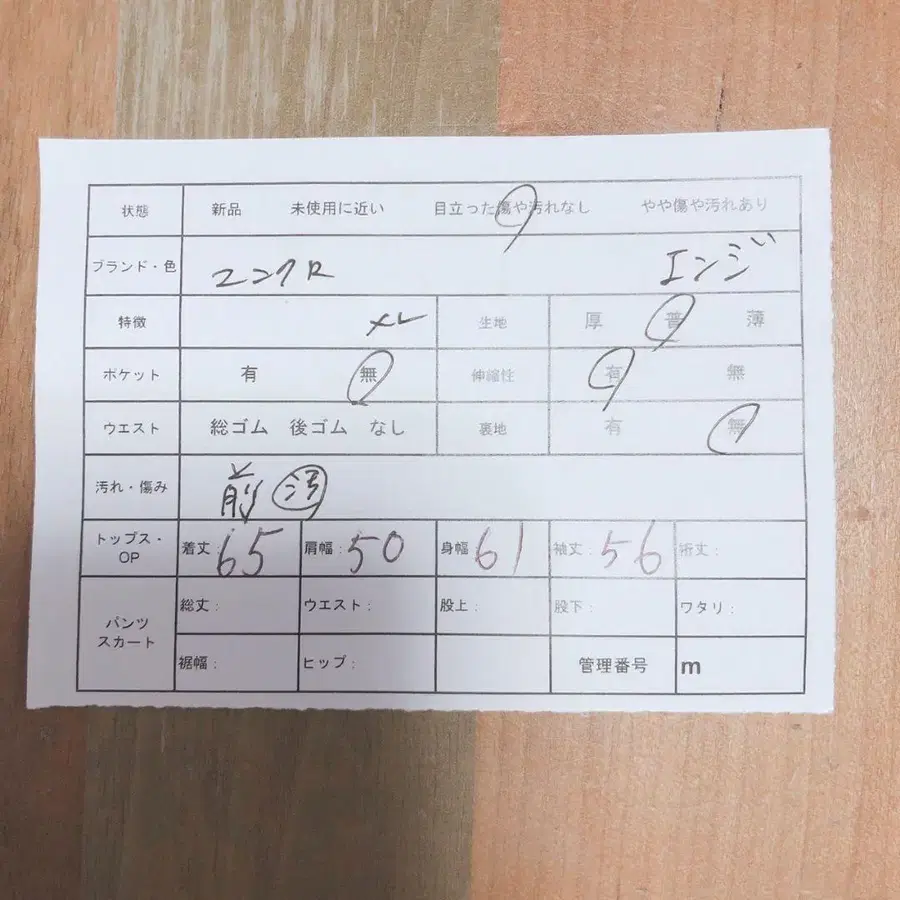 状態 新品 未使用に近い 目立った傷や汚れなし やや傷や汚れあり
ブランド・色 ユニクロ エンジ
特徴 生地 厚 普 薄
ポケット 有 無 伸縮性 有 無
ウエスト 総ゴム 後ゴム なし 裏地 有 無
汚れ・傷み 前 汚
トップス・OP 着丈: 65 肩幅: 50 身幅 61 袖丈: 56 裄丈:
パンツ スカート 総丈: ウエスト: 股上: 股下: ワタリ:
裾幅: ヒップ: 管理番号 m